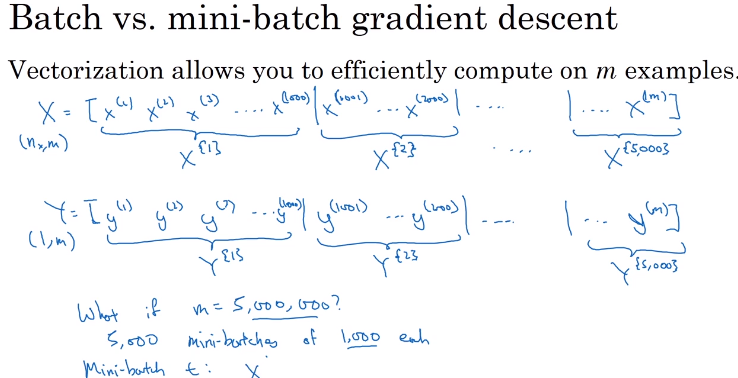 Batch vs. mini-batch gradient descent
Vectorization allows you to efficiently compute on m examples.
X = [x^(1) x^(2) x^(3) .... x^(1000) | x^(1001) ... x^(2000) | .... | .... x^(m)]
(n_x, m) X^{1} X^{2} .... X^{5,000}
Y = [y^(1) y^(2) y^(3) ... y^(1000) | y^(1001) ... y^(2000) | .... | ... y^(m)]
(1, m) Y^{1} Y^{2} Y^{5,000}
What if m = 5,000,000?
5,000 mini-batches of 1,000 each
Mini-batch t: X